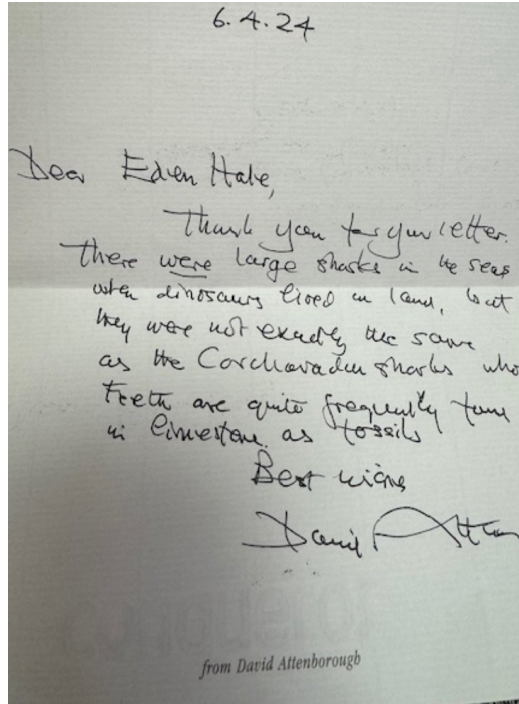 6.4.24
Dear Eden Hale,
Thank you for your letter.
There were large sharks in the seas
when dinosaurs lived on land, but
they were not exactly the same
as the sharks who
teeth are quite frequently
in limestone as fossils
Best wishes
David
from David Attenborough